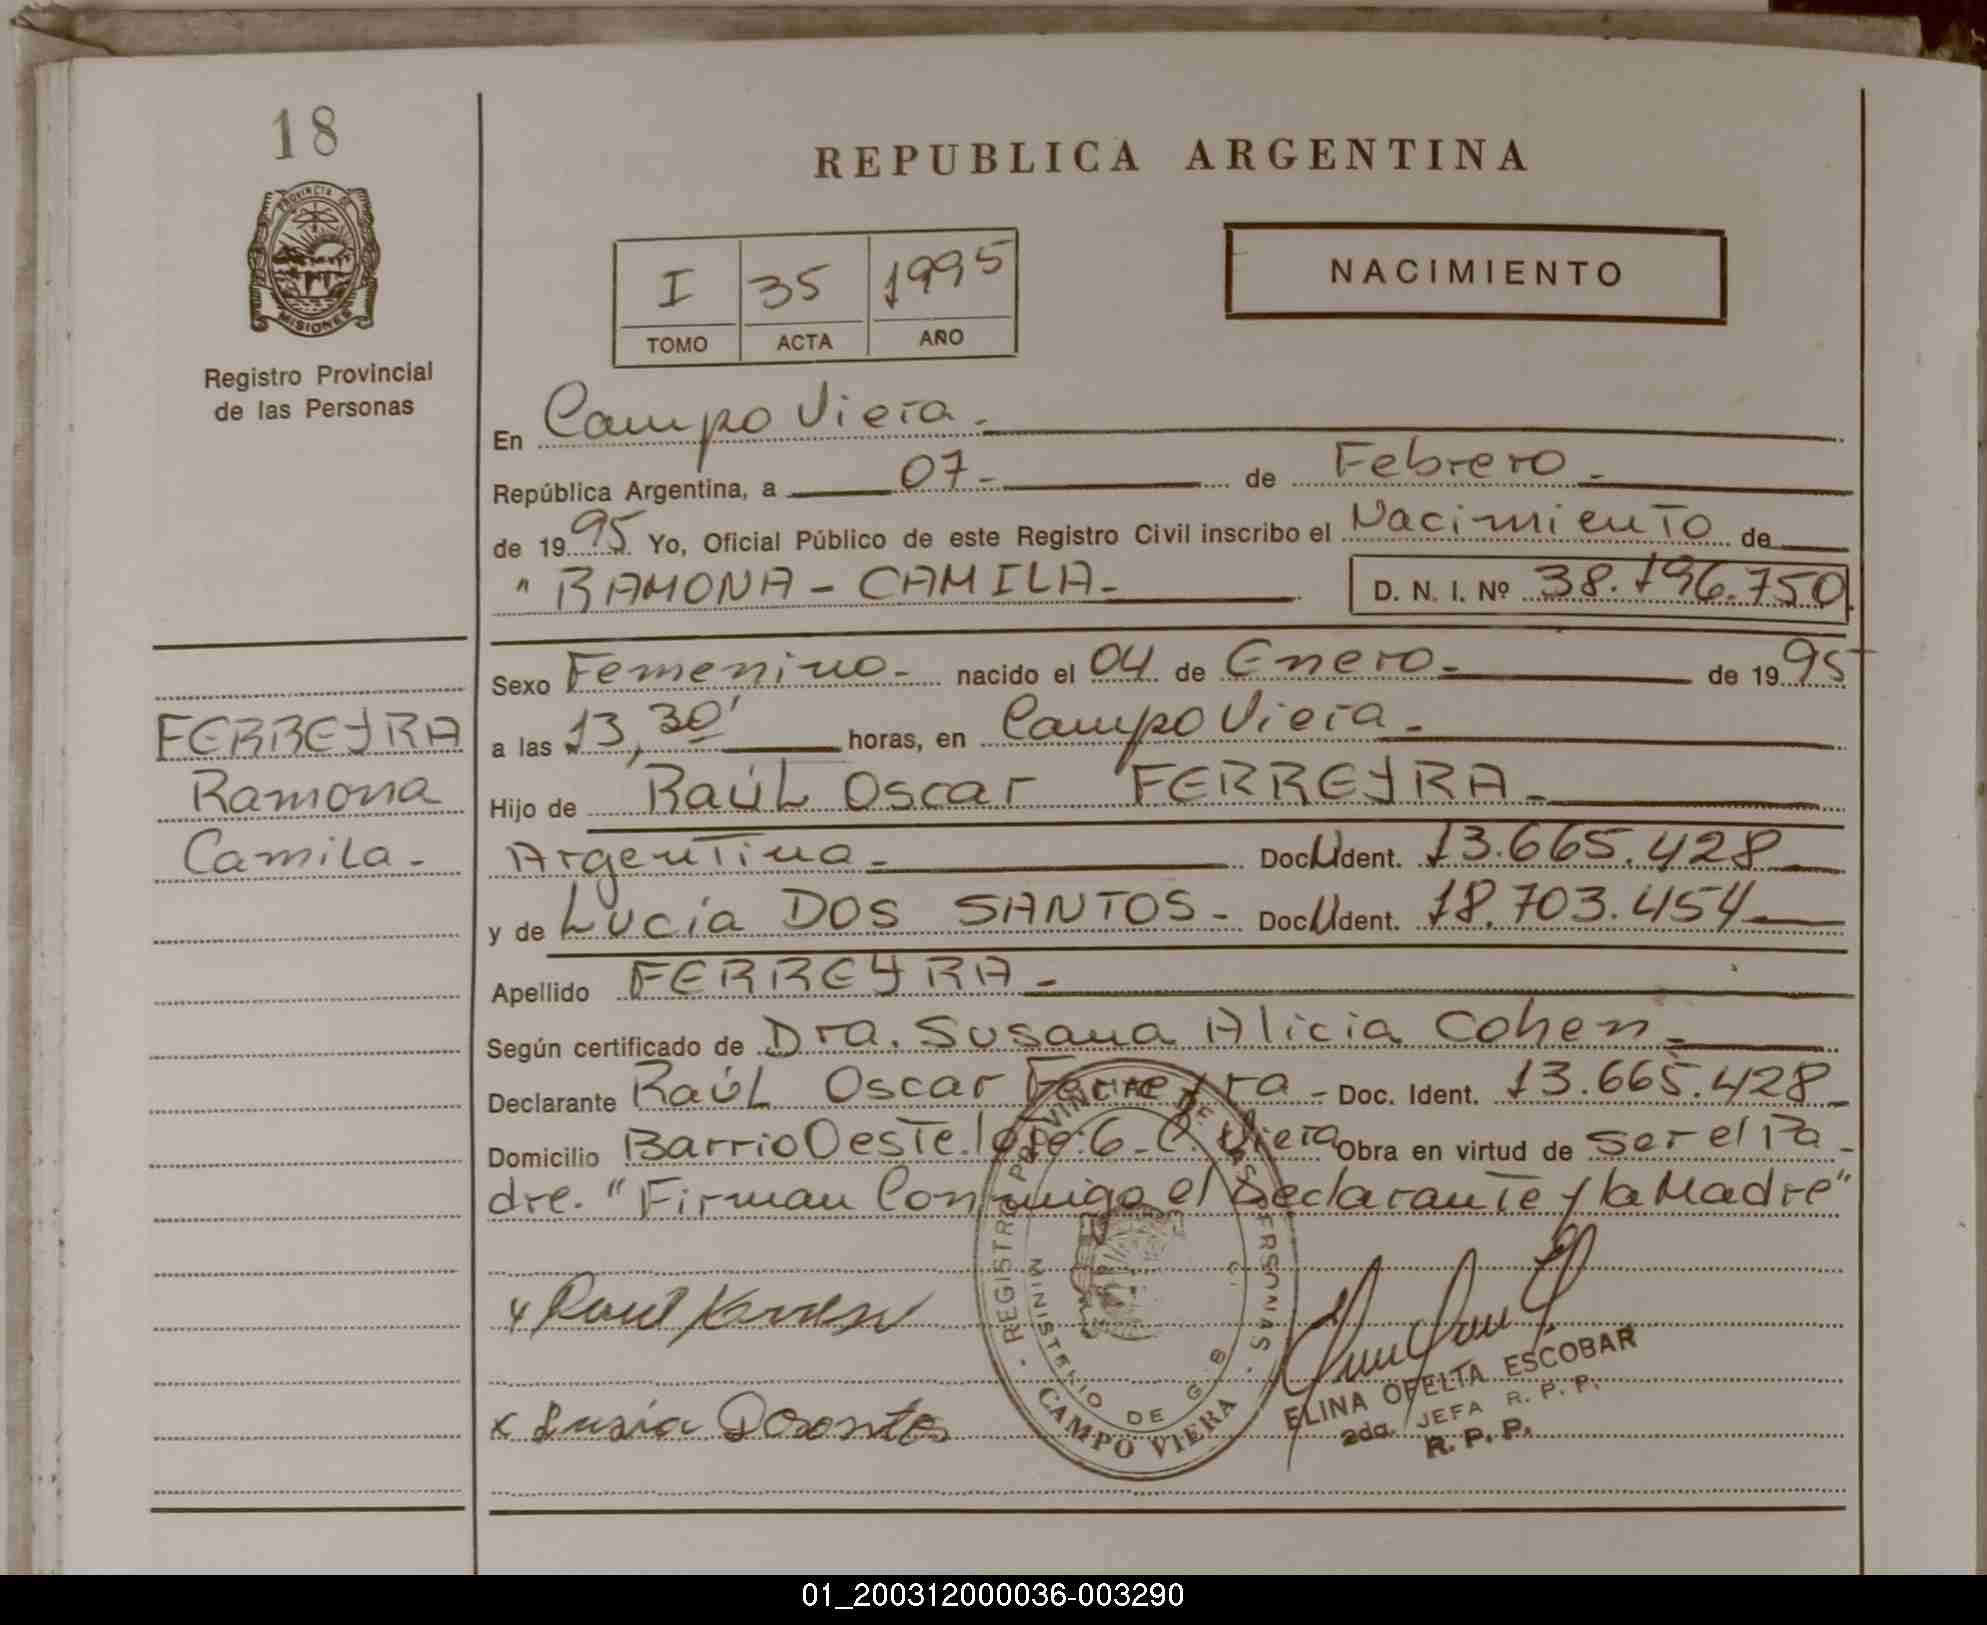 18
REPUBLICA ARGENTINA
PROVINCIA DE
MISIONES
Registro Provincial
de las Personas
NACIMIENTO
I 35 1995
TOMO ACTA AÑO
En Campo Viera.
República Argentina, a 07- de Febrero-
de 1995 Yo, Oficial Público de este Registro Civil inscribo el Nacimiento de
" RAMONA - CAMILA- D. N. I. Nº 38.196.750
Sexo Femenino- nacido el 04 de Enero- de 1995
a las 13,30' horas, en Campo Viera-
Hijo de Raúl Oscar FERREYRA-
Argentina- Doc. U Ident. 13.665.428
y de Lucía DOS SANTOS- Doc. U Ident. 18.703.454
Apellido FERREYRA-
Según certificado de Dra. Susana Alicia Cohen-
Declarante Raúl Oscar Ferreyra- Doc. Ident. 13.665.428-
Domicilio Barrio Oeste. lote: 6- C. Viera Obra en virtud de ser el Pa-
dre. "Firman Conmigo el Declarante y la Madre"
FERREYRA
Ramona
Camila-
REGISTRO PROVINCIAL DE LAS PERSONAS
MINISTERIO DE G.
CAMPO VIERA
ELINA OFELIA ESCOBAR
2da. JEFA R. P. P.
R. P. P.
01_200312000036-003290